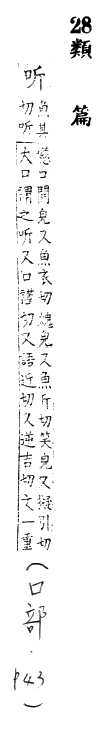 28類篇
听 魚其𧦧口開皃又魚玄切𧨅皃又魚斤切笑皃又擬引切
切听大口謂之听又口謹切又語近切又逆吉切文一重
(口部.
P43)